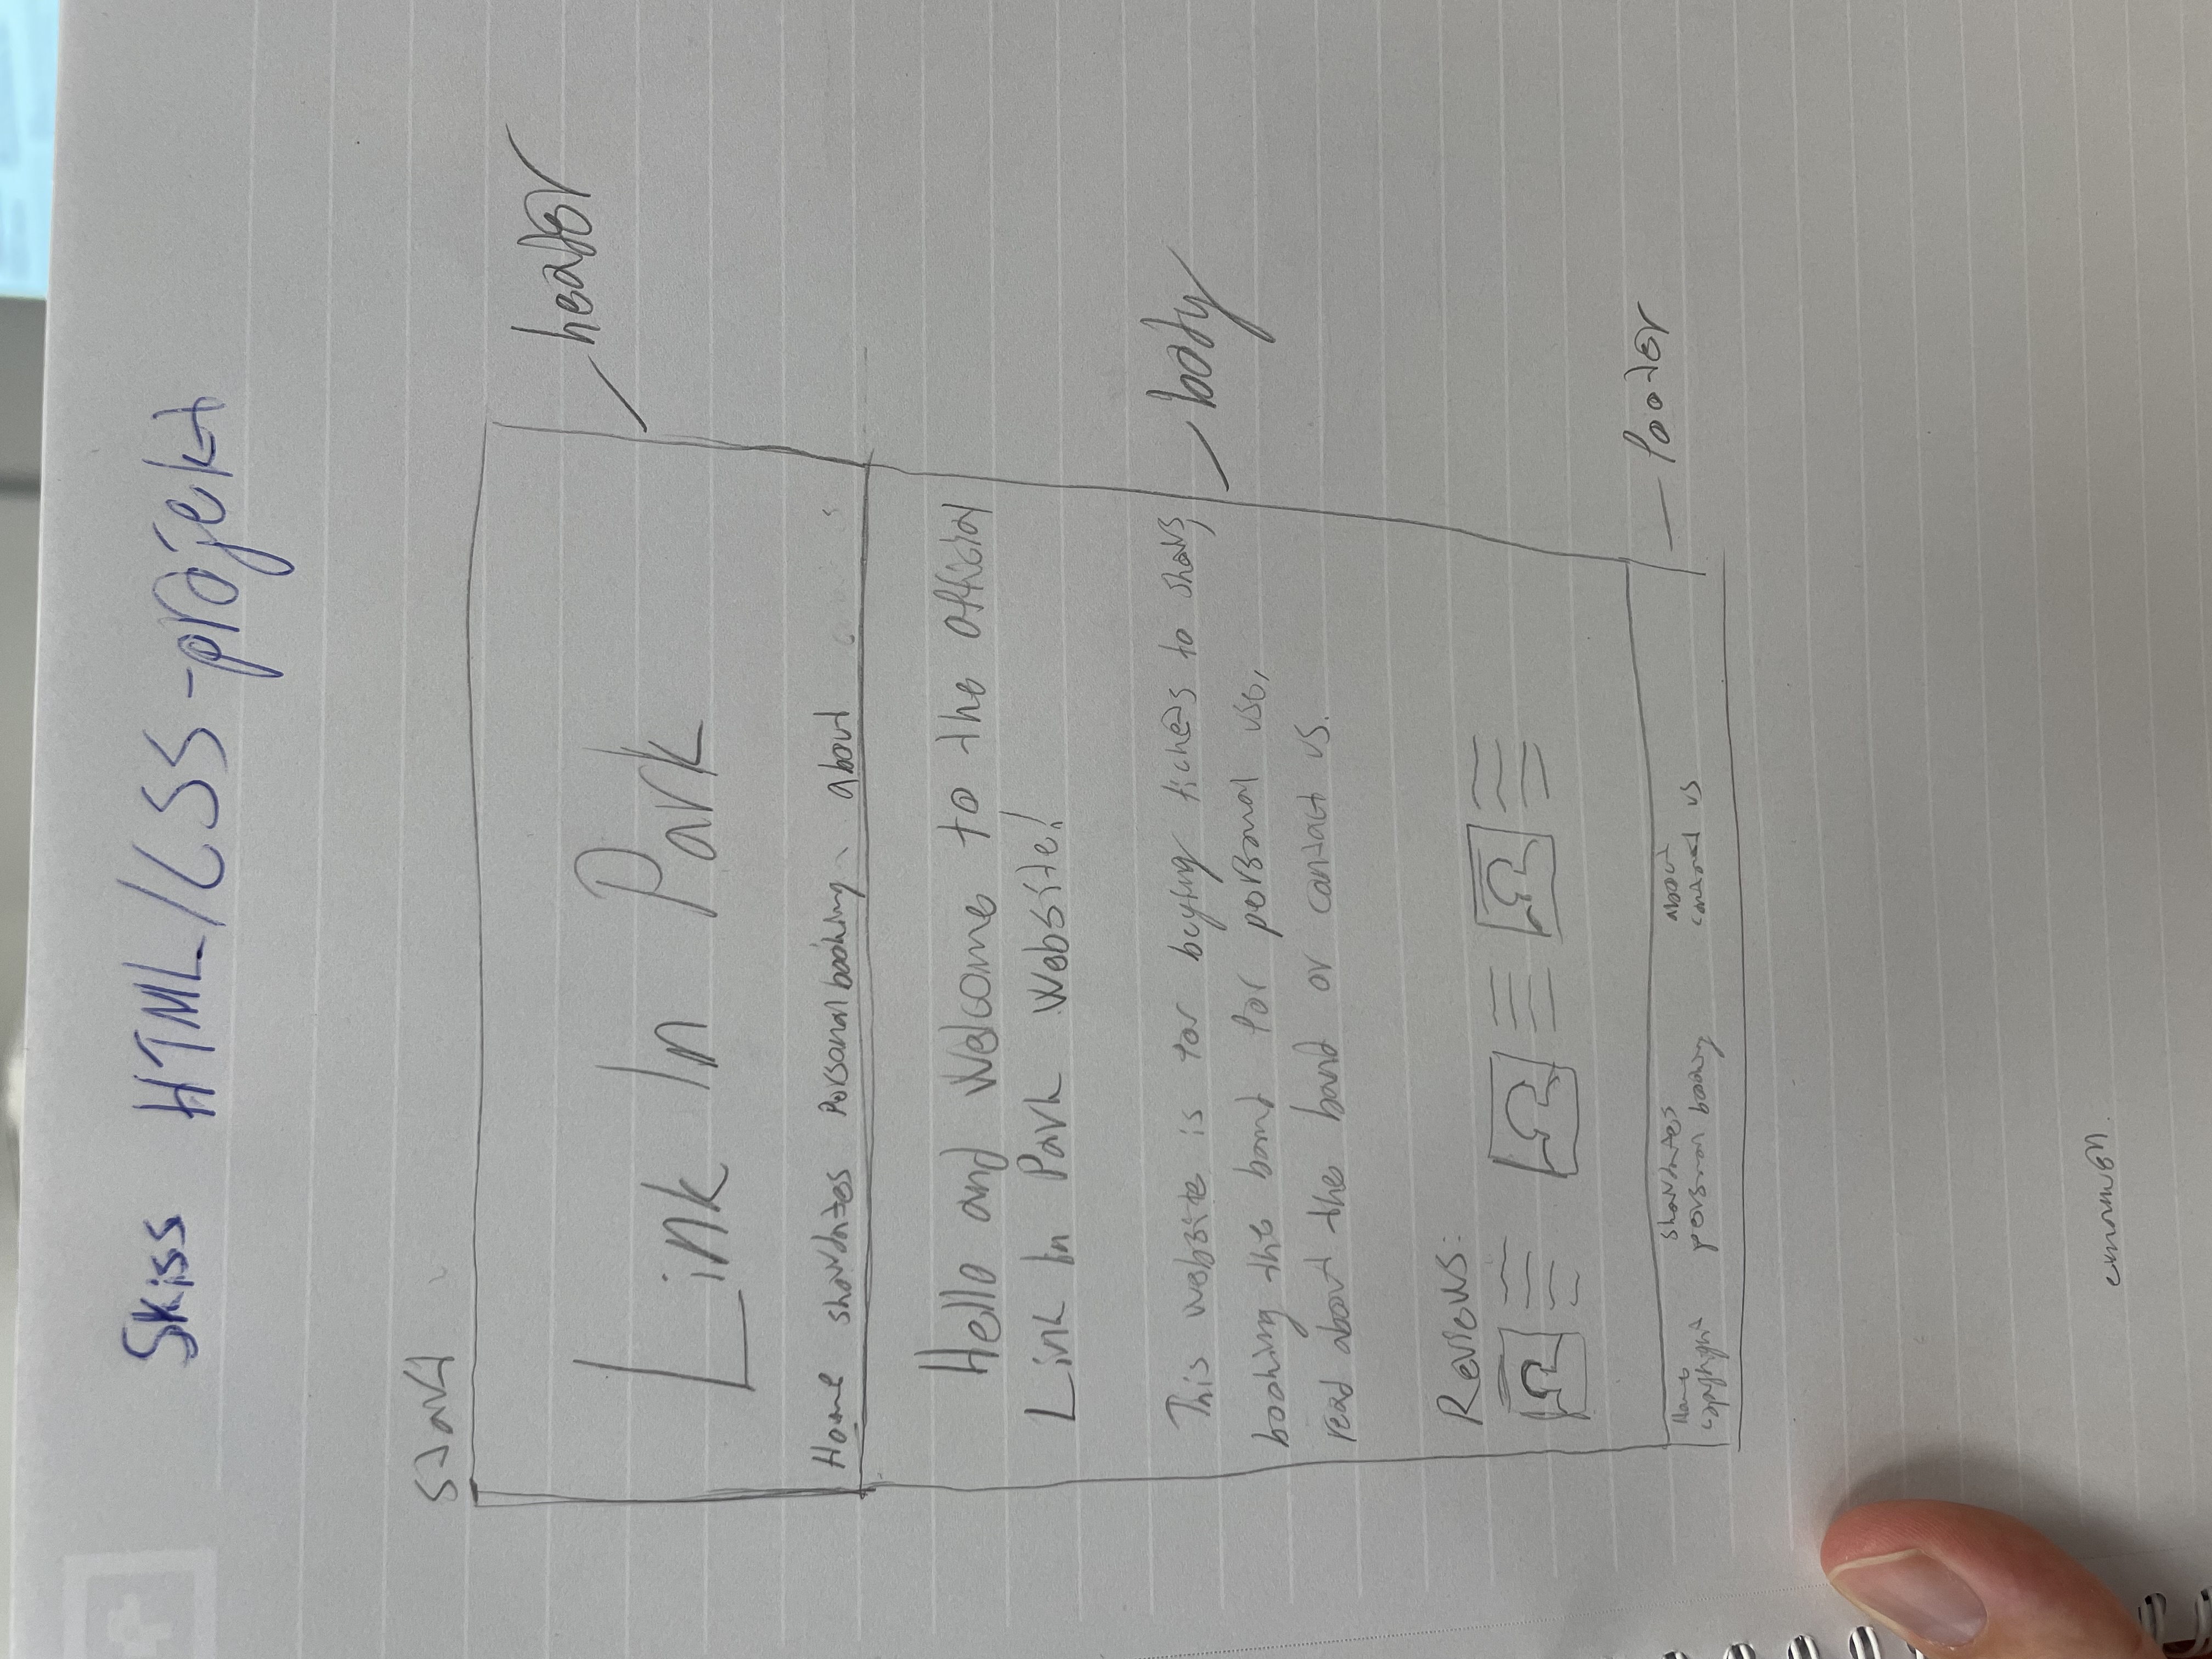 Skiss HTML/CSS-projekt
start
Link In Park
header
Home showdates Personal booking about
Hello and Welcome to the official
Link In Park Website!
This website is for buying tickets to shows,
booking the band for personal use,
read about the band or contact us.
body
Reviews:
footer
Home showdates about
copyright personal booking contact us